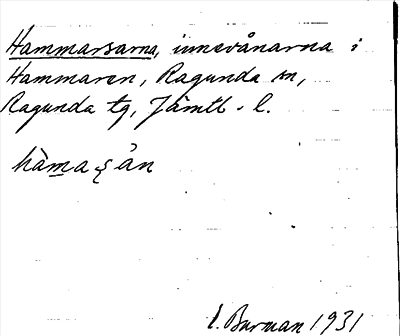 Hammarsarna, innevånarna i
Hammaren, Ragunda sn,
Ragunda tg, Jämtl. l.
hàmaʂån
E. Burman 1931